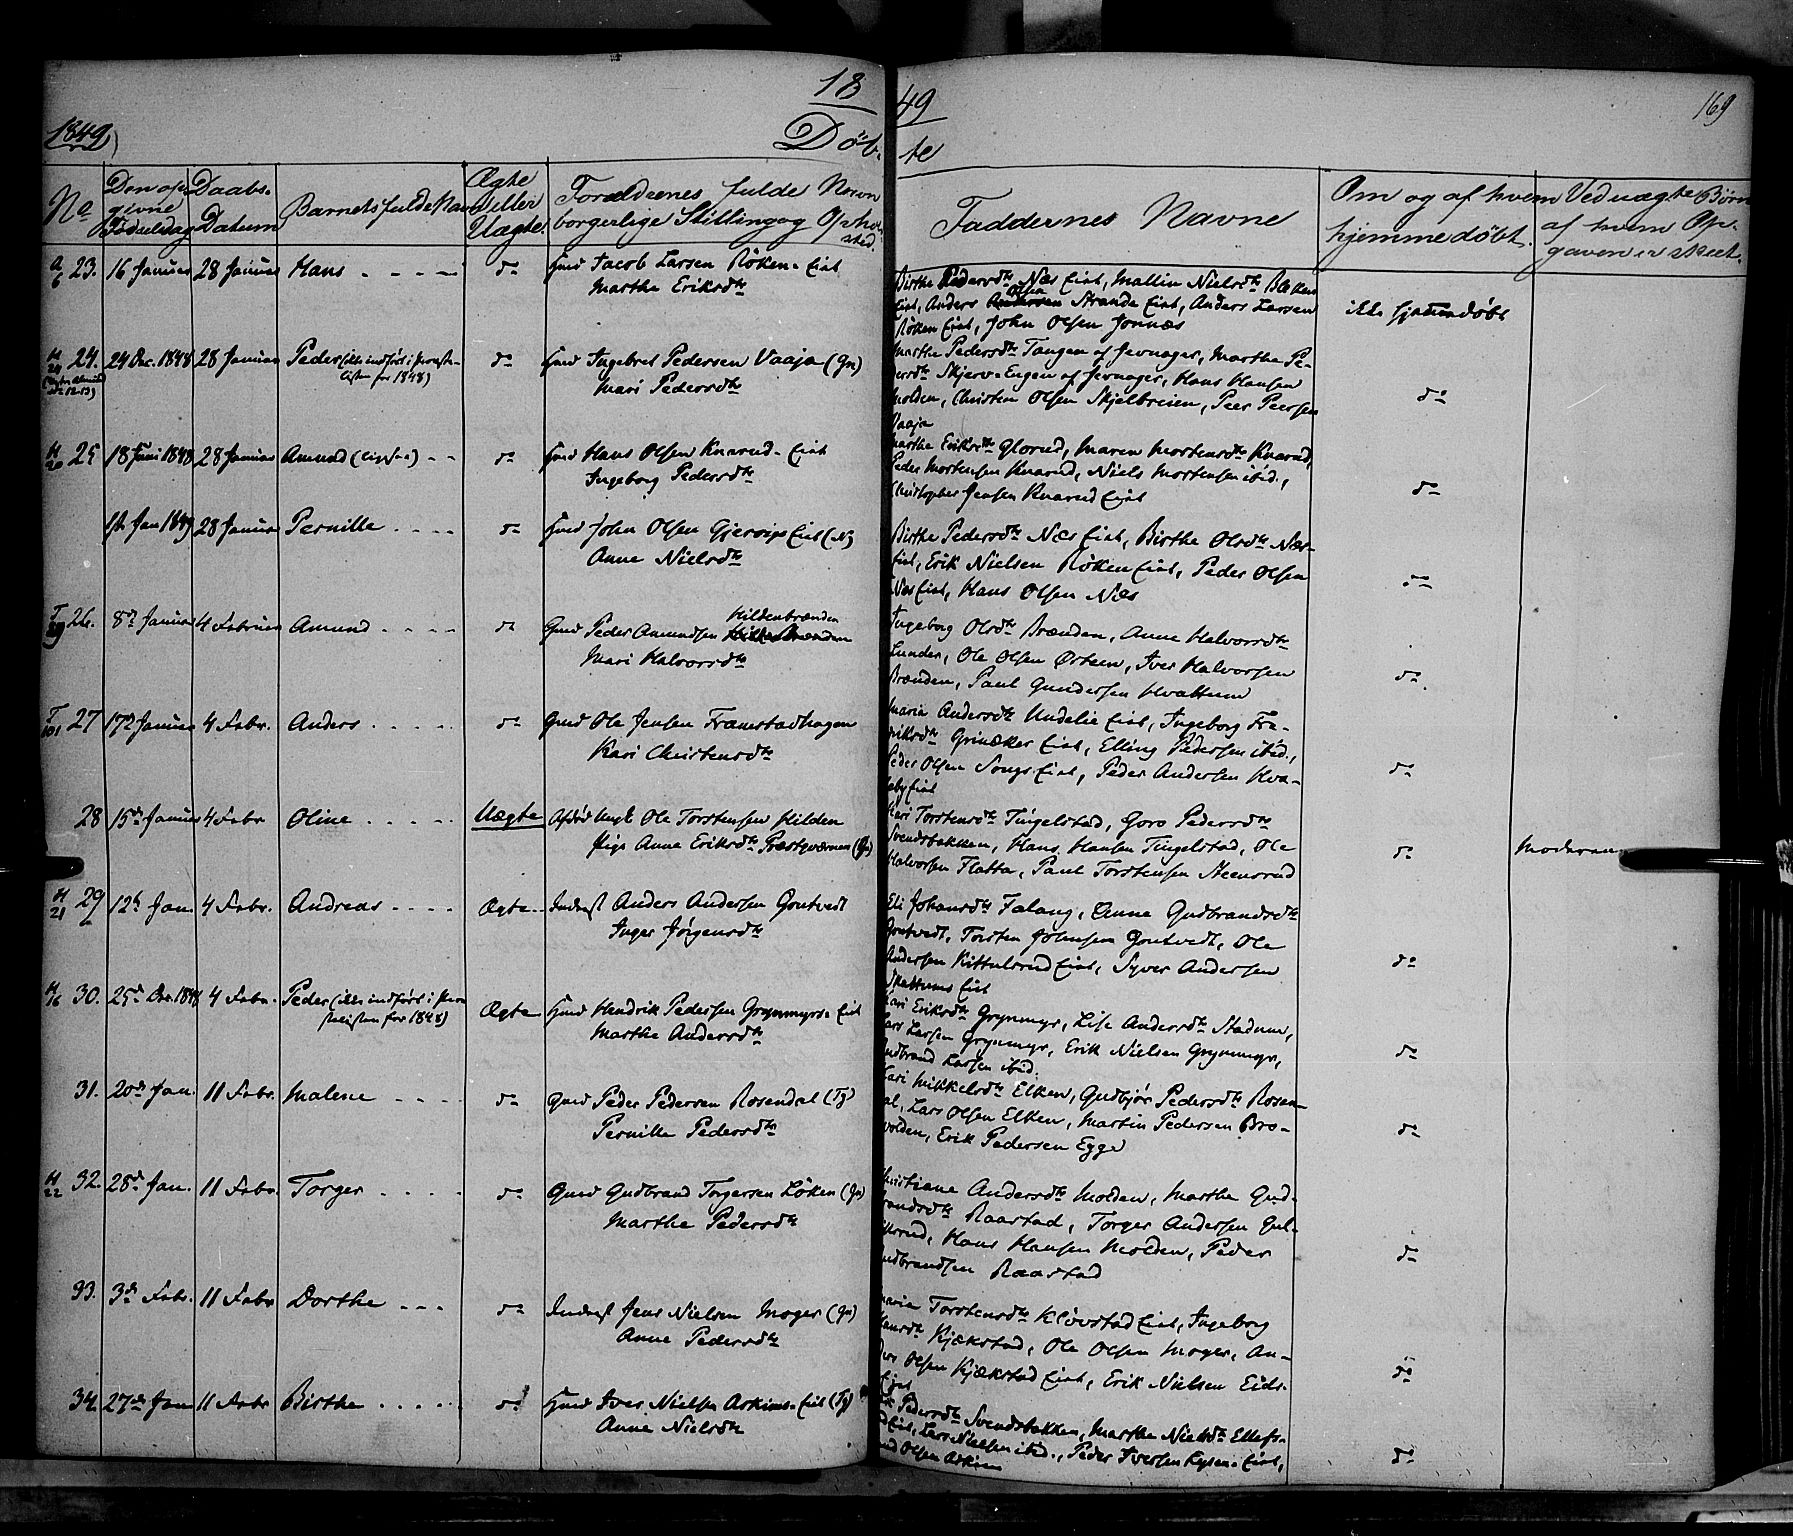 18 49
169
1849)
Døb- te
No
Den op-
givne
Fødselsdag
Daabs-
Datum
Barnets fulde Navn
Ægte
eller
Uægte
Forældrenes fulde Navn
borgerlige Stilling og Opholds-
sted.
Faddernes Navne
Om og af hvem
hjemmedøbt.
Ved uægte Børn
af hvem Op-
gaven er skeet.
23. 16 Januar 28 Januar Hans do Hmd Jacob Larsen Røken-Eiet
Marthe Eriksdtr
Birthe Pedersdtr Næs Eiet, Mallin Nielsdtr Bleken
Eiet, Anders Olsen Strande Eiet, Anders Larsen
Røken Eiet, John Olsen Jonnæs
ikke hjemmedøbt
24. 24 Dec. 1848 28 Januar Peder (ikke indført i Præste-
listen for 1848)
do Hmd Ingebret Pedersen Vaaja (Gn)
Mari Pedersdtr
Marthe Pedersdtr Tangen af Jevnager, Marthe Pe-
dersdtr Skjerv-Engen af Jevnager, Hans Hansen
Molden, Christen Olsen Skjelbreien, Peer Peersen
Vaaja
do
25 18 Juni 1848 28 Januar Amund do Hmd Hans Olsen Knarud-Eiet
Ingeborg Pedersdtr
Marthe Eriksdtr Glorud, Maren Mortensdtr Knarud,
Peder Mortensen Knarud, Niels Mortensen ibid.,
Christopher Jensen Knarud Eiet
do
Jan 1849 28 Januar Pernille do Hmd John Olsen Gjervigs Eiet (N)
Anne Nielsdtr
Birthe Pedersdtr Næs Eiet, Birthe Olsdtr Næs-
Eiet, Erik Nielsen Røken Eiet, Peder Olsen
Næs Eiet, Hans Olsen Næs
do
26. 8de Januar 4 Februar Amund do Gmd Peder Amundsen Hildenbrænden
Mari Halvorsdtr
Ingeborg Olsdtr Brænden, Anne Halvorsdtr
Lunder, Ole Olsen Østeen, Iver Halvorsen
Brænden, Paul Gundersen Hvattum
do
27 17de Januar 4 Febr. Anders do Gmd Ole Jensen Framstadhagen
Kari Christensdtr
Maria Andersdtr Undelie Eiet, Ingeborg Fre-
driksdtr Grinaker Eiet, Elling Pedersen ibid.,
Peder Olsen Songs Eiet, Peder Andersen Hva-
leby Eiet
do
28 15de Januar 4 Febr Oline Uægte Ungk Ole Torstensen Hilden
Pige Anne Eriksdtr Præstqværnen (Gn)
Kari Torstensdtr Tingelstad, Goro Pedersdtr
Svendsbakken, Hans Hansen Tingelstad, Ole
Halvorsen Flatta, Paul Torstensen Steensrud
do
Moderen
29 12te Jan 4 Febr. Andreas Ægte Inderst Anders Andersen Gontvedt
Inger Jørgensdtr
Eli Johansdtr Falang, Anne Gudbrandsdtr
Gontvedt, Torsten Johnsen Gontvedt, Ole
Andersen Kittulsrud Eiet, Syver Andersen
Skattums Eiet
do
30. 25de Dec. 1848 4 Febr. Peder (ikke indført i Præ
stelisten for 1848)
Ægte Hmd Hendrik Pedersen Grynmyrs-Eiet
Marthe Andersdtr
Kari Eriksdtr Grynmyr, Lise Andersdtr Stadum,
Lars Larsen Grynmyr, Erik Nielsen Grynmyr,
Gudbrand Larsen ibid.
do
31. 20de Jan. 11 Febr. Malene do Gmd Peder Pedersen Rosendal (Tg)
Pernille Pedersdtr
Kari Mikkelsdtr Elken, Gudbjør Pedersdtr Rosen-
dal, Lars Olsen Elken, Martin Pedersen Bro-
volden, Erik Pedersen Egge
do
32. 28de Jan. 11 Febr. Torger do Gmd Gudbrand Torgersen Løken (Gn)
Marthe Pedersdtr
Christiane Andersdtr Molden, Marthe Gud-
brandsdtr Raastad, Torger Andersen Gul-
liksrud, Hans Hansen Molden, Peder
Gudbrandsen Raastad
do
33. 3de Febr. 11 Febr Dorthe do Inderst Jens Nielsen Moger (Gn)
Anne Pedersdtr
Maria Torstensdtr Kløvstad Eiet, Ingeborg
Hansdtr Kjækstad, Ole Olsen Moger, An-
ders Olsen Kjækstad Eiet, Erik Nielsen Eids-
Eiet
do
34. 27de Jan 11 Febr Birthe do Hmd Iver Nielsen Askims-Eiet (Tg)
Anne Nielsdtr
Pedersdtr Svendsbakken, Marthe Nielsdtr Ellefs-
rud Eiet, Lars Nielsen ibid., Peder Iversen Eiet,
Olsen Askim
do